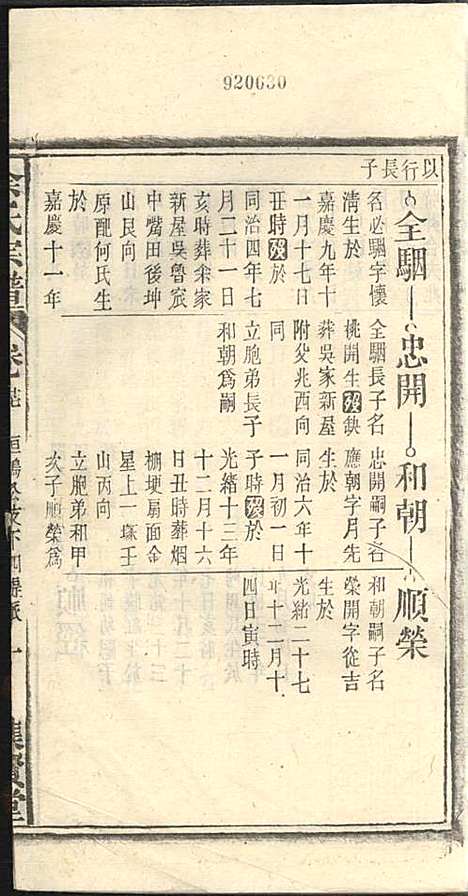 920630
以行長子
全駰
忠開
和朝
順榮
名必駰字懷
清生於
嘉慶九年十
一月十七日
丑時歿於
同治四年七
月二十一日
亥時葬余家
新屋吳魯宸
中嘴田後坤
山艮向
原配何氏生
於
嘉慶十一年
全駰長子名
桃開生歿缺
葬吳家新屋
附父兆西向
同
立胞弟長子
和朝為嗣
忠開嗣子名
應朝字月先
生於
同治六年十
一月初一日
子時歿於
光緒十三年
十二月十六
日丑時葬烟
棚埂扇面金
星上一塚壬
山丙向
立胞弟和甲
次子順榮為
和朝嗣子名
榮開字從吉
生於
光緒二十七
年十二月十
四日寅時
氏宗譜
集賢堂